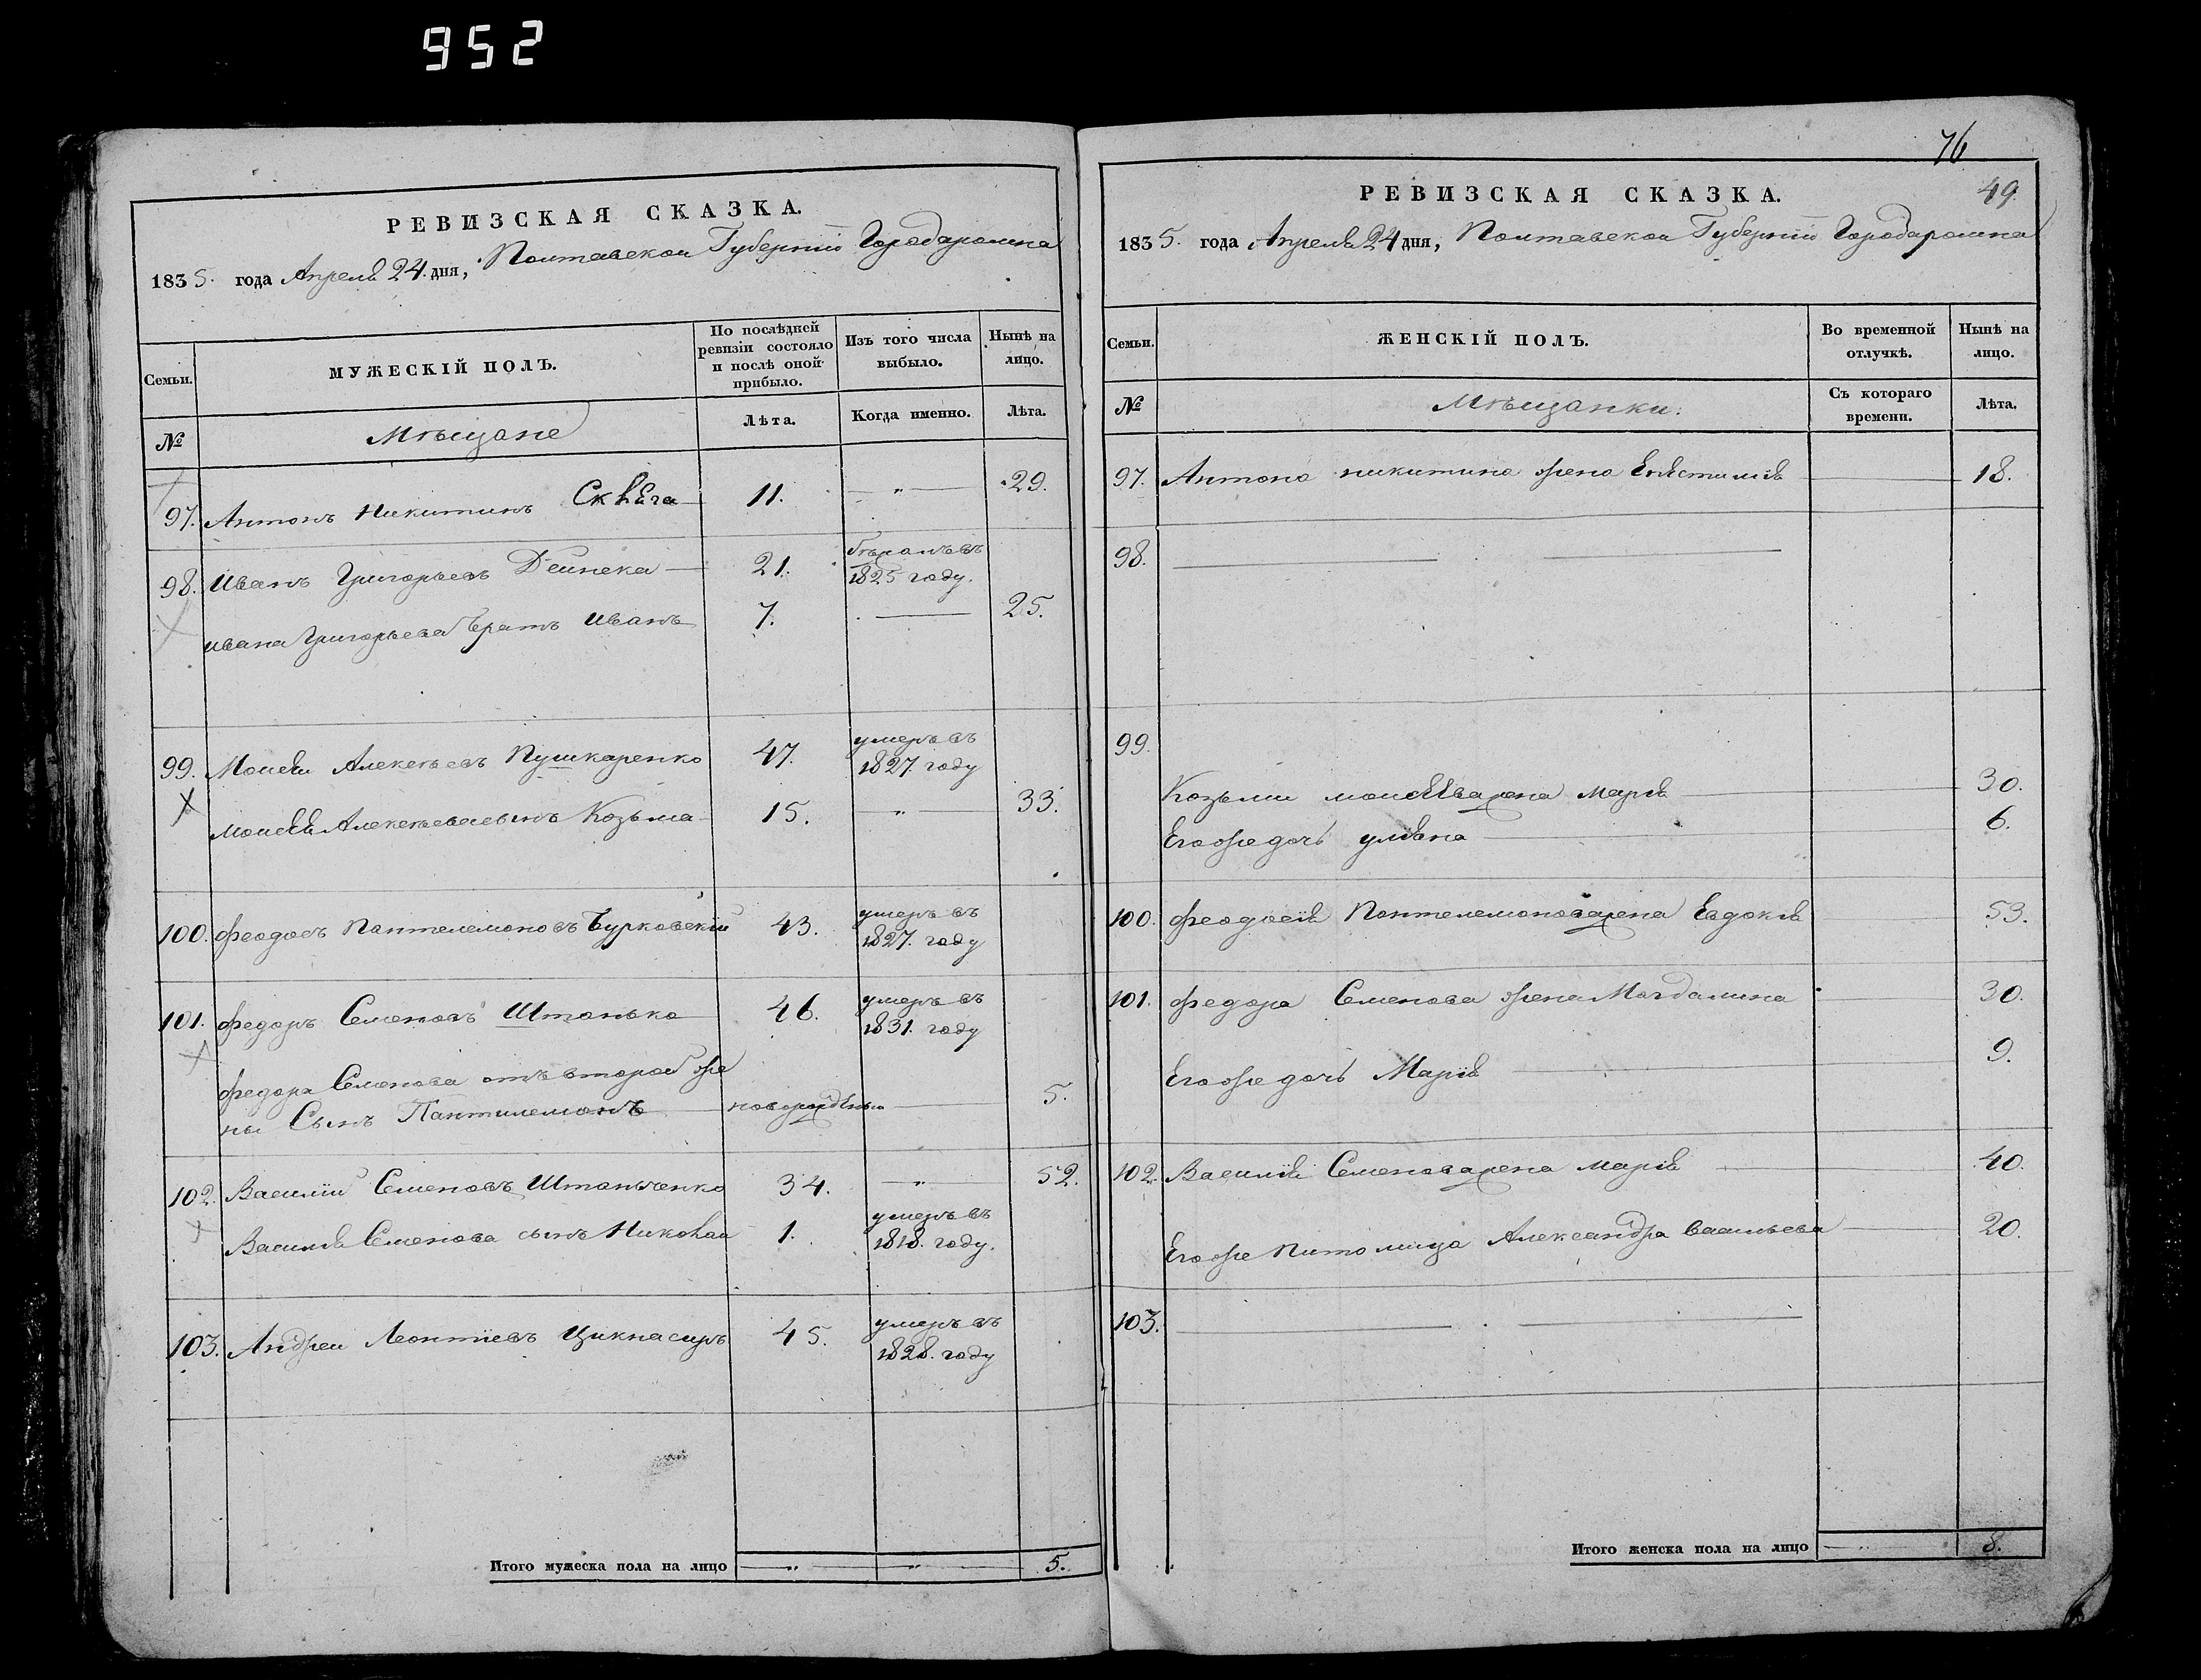 952
РЕВИЗСКАЯ СКАЗКА.
1835. года Апреля 24. дня, Полтавской Губернии Города Ромна
Семьи.
МУЖЕСКІЙ ПОЛЪ.
По послѣдней ревизіи состояло и послѣ оной прибыло.
Изъ того числа выбыло.
Нынѣ на лицо.
№
Мѣщане
Лѣта.
Когда именно.
Лѣта.
97. Антонъ Никитинъ 11. — „ — 29.
98. Иванъ Григорьевъ Дейнека 21. бѣжалъ въ 1825 году.
Ивана Григорьева братъ Иванъ 7. — 25.
99. Моисей Алексѣевъ Пушкаренко 47. умеръ въ 1827. году
Моисея Алексѣева сынъ Козьма 15. — „ — 33.
100. Феодосъ Пантелемоновъ Бурковскій 43. умеръ въ 1827. году
101. Федоръ Семеновъ Штанько 46. умеръ въ 1831. году
Федора Семенова отъ второй же
ны Сынъ Пантилемонъ новорожденъ — 5.
102. Василій Семеновъ Штаньченко 34. — „ — 52.
Василія Семенова сынъ Николай 1. умеръ въ 1818. году.
103. Андрей Леонтіевъ 45. умеръ въ 1828. году
Итого мужеска пола на лицо — „ — „ — 5.
76
49.
РЕВИЗСКАЯ СКАЗКА.
1835. года Апреля 24 дня, Полтавской Губернии Города Ромна
Семьи.
ЖЕНСКІЙ ПОЛЪ.
Во временной отлучкѣ.
Нынѣ на лицо.
№
Мѣщанки.
Съ котораго времени.
Лѣта.
97. Антона Никитина жена 18.
98.
99.
Козьмы Моисеева жена Марія 30.
Его же дочь Уліяна 6.
100. Феодосія Пантелемонова жена Евдокія 53.
101. Федора Семенова жена Магдалина 30.
Его же дочь Марія 9.
102. Василія Семенова жена Марія 40.
Его же Питомица Александра Васильева 20.
103.
Итого женска пола на лицо 8.